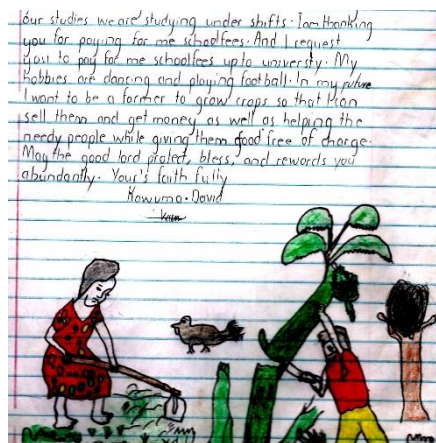 our studies we are studying under shifts. I am thanking
you for paying for me schoolfees. And I request
you to pay for me schoolfees upto university. My
hobbies are dancing and playing football. In my future
I want to be a former to grow crops so that I can
sell them and get money as well as helping the
needy people while giving them food free of charge.
May the good lord protect, bless, and rewards you
abundantly. Your's faith fully
Kawuma. David